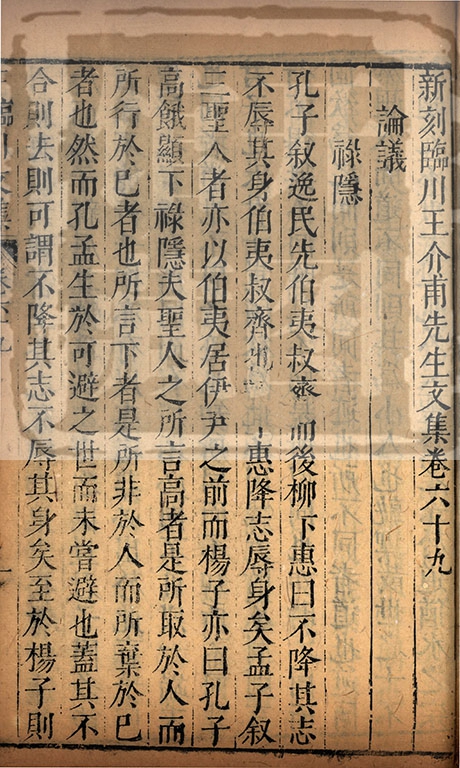 新刻臨川王介甫先生文集卷六十九
論議
祿隱
孔子敘逸民先伯夷叔齊而後柳下惠曰不降其志
不辱其身伯夷叔齊也 下惠降志辱身矣孟子敘
三聖人者亦以伯夷居伊尹之前而楊子亦曰孔子
高餓顯下祿隱夫聖人之所言高者是所取於人而
所行於已者也所言下者是所非於人而所棄於已
者也然而孔孟生於可避之世而未嘗避也蓋其不
合則去則可謂不降其志不辱其身矣至於楊子則